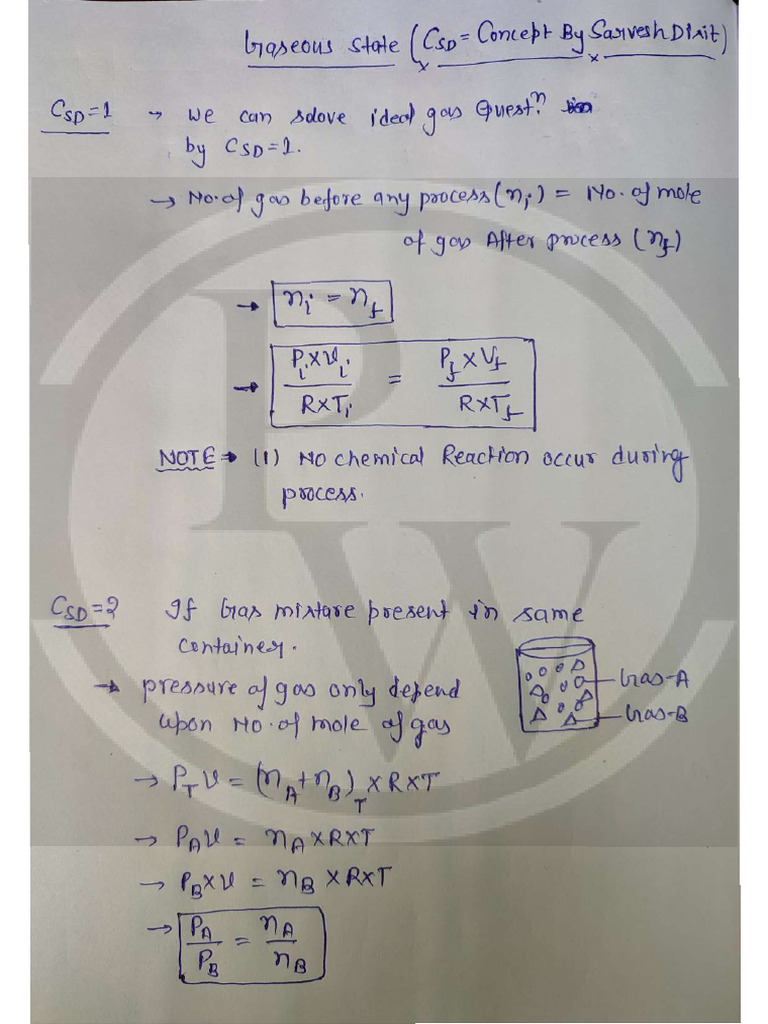 Gaseous state (CSD = Concept By Sarvesh Dixit)
CSD=1 → we can solove ideal gas Questⁿ.
by CSD=1.
→ No. of gas before any process (ni) = No. of mole
of gas After process (nf)
→ ni = nf
→ Pi×Vi / R×Ti = Pf×Vf / R×Tf
NOTE → (1) No chemical Reaction occur during
process.
CSD=2 If Gas mixtare present in same
container.
→ pressure of gas only depend
upon No. of mole of gas
Gas-A
Gas-B
→ PTV = (nA+nB)T ×R×T
→ PAV = nA×R×T
→ PB×V = nB ×R×T
→ PA/PB = nA/nB
PW